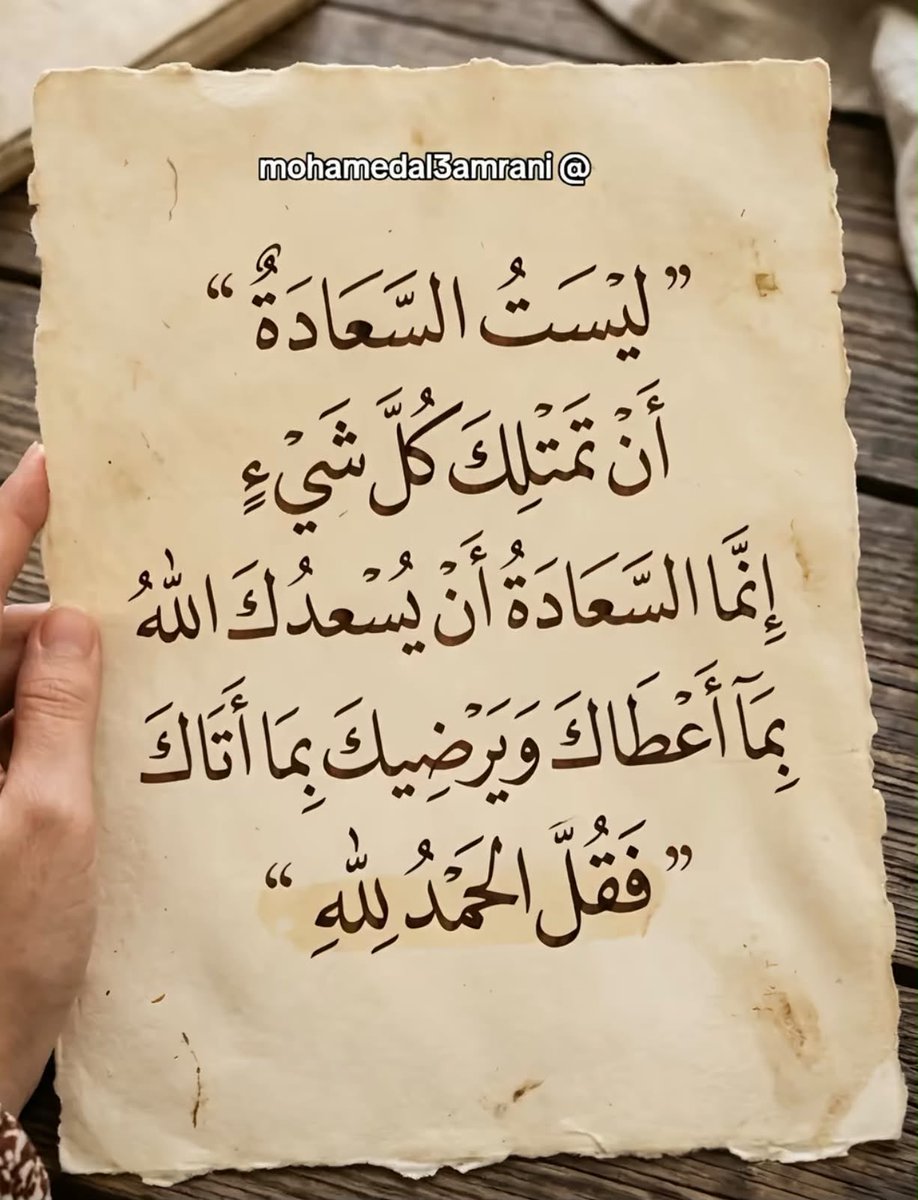 mohamedal3amrani @
” لَيْسَتُ السَّعَادَةٌ “
أَنْ تَمْتَلِكَ كُلَّ شَيْءٍ
إِنَّمَا السَّعَادَةُ أَنْ يُسْعدُكَ اللهُ
بِمَآ أَعْطَاكَ وَيَرْضِيكَ بِمَا أَتَاكَ
” فَقُلَّ الْحَمْدُ لِلّٰهِ “